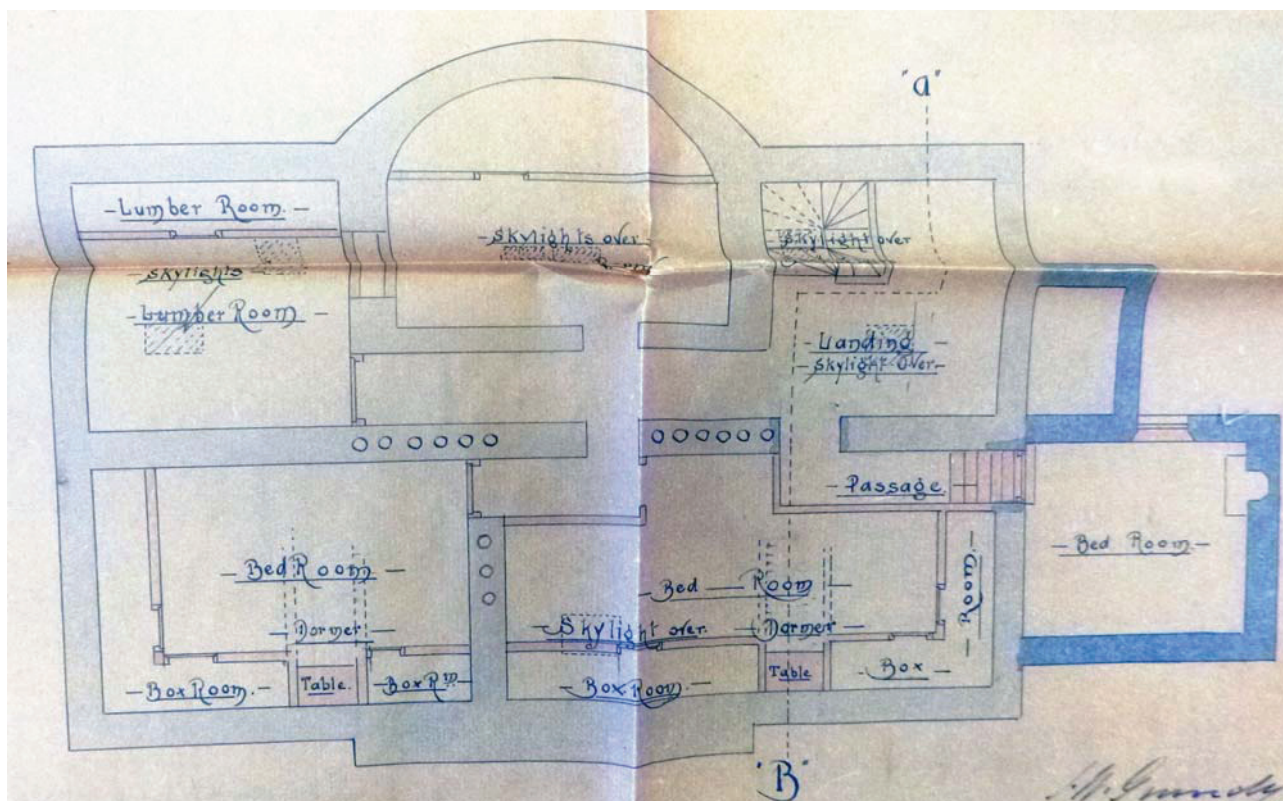 "a"
Lumber Room.
Skylights over
Skylight over
Skylights
Lumber Room
Landing
Skylight over
Passage
Bed Room
Bed Room
Bed Room
Room
Dormer
Skylight over.
Dormer
Box Room.
Table.
Box Rm
Box Room.
Table
Box
"B"